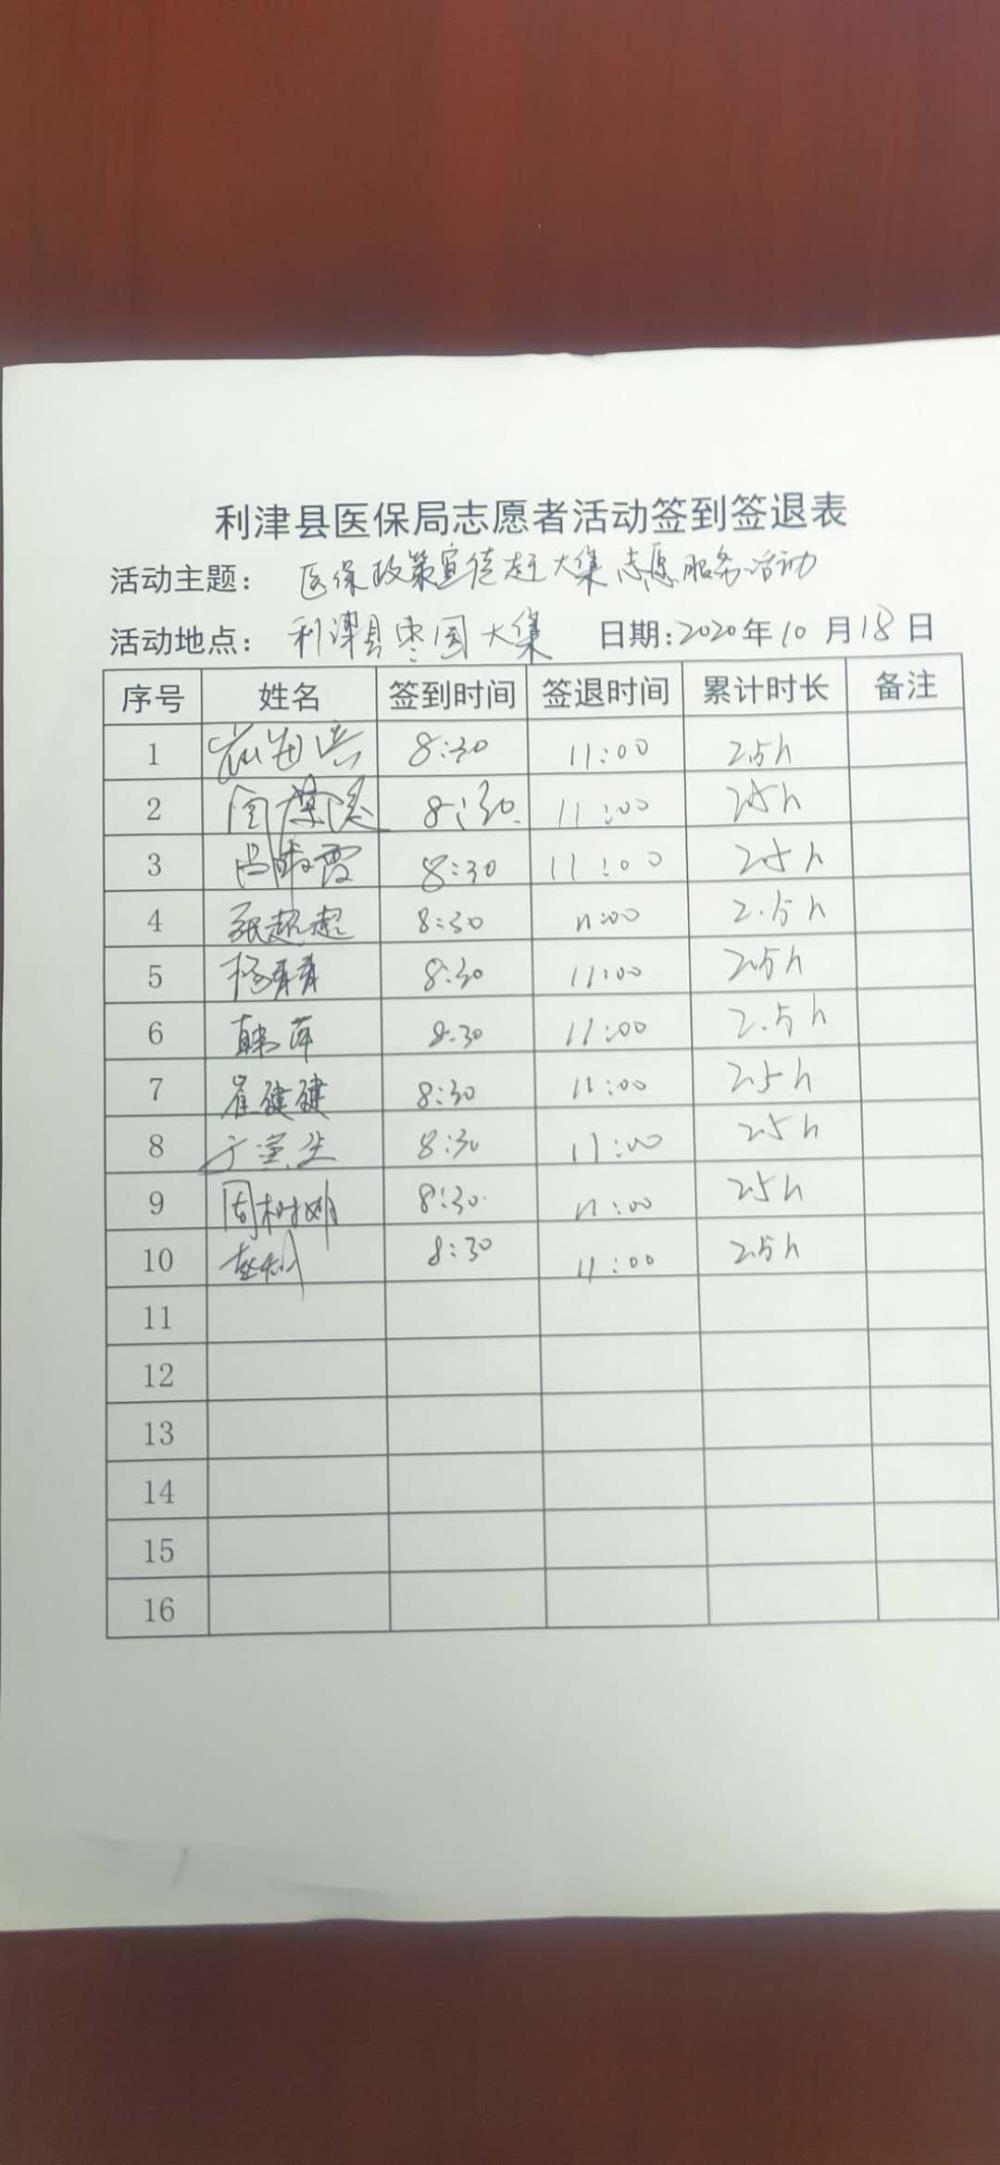 利津县医保局志愿者活动签到签退表
活动主题： 医保政策宣传赶大集志愿服务活动
活动地点： 利津县枣园大集 日期:2020年10月18日
序号 姓名 签到时间 签退时间 累计时长 备注
1 8:30 11:00 2.5h
2 8:30 11:00 2.5h
3 8:30 11:00 2.5h
4 张超超 8:30 11:00 2.5h
5 杨青青 8:30 11:00 2.5h
6 韩萍 8:30 11:00 2.5h
7 崔健健 8:30 11:00 2.5h
8 8:30 11:00 2.5h
9 周树娟 8:30 11:00 2.5h
10 8:30 11:00 2.5h
11
12
13
14
15
16